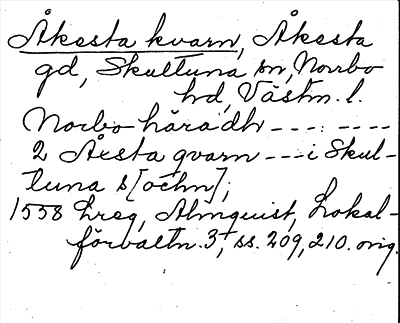 Åkesta kvarn, Åkesta
gd, Skultuna sn, Norrbo
hd, Västm. l.
Norbo häradh ---: ----
2 Åesta qvarn --- i Skul-
tuna s[ochn];
1558 Lreg, Almquist, Lokal-
förvaltn. 3, ss. 209, 210. orig.